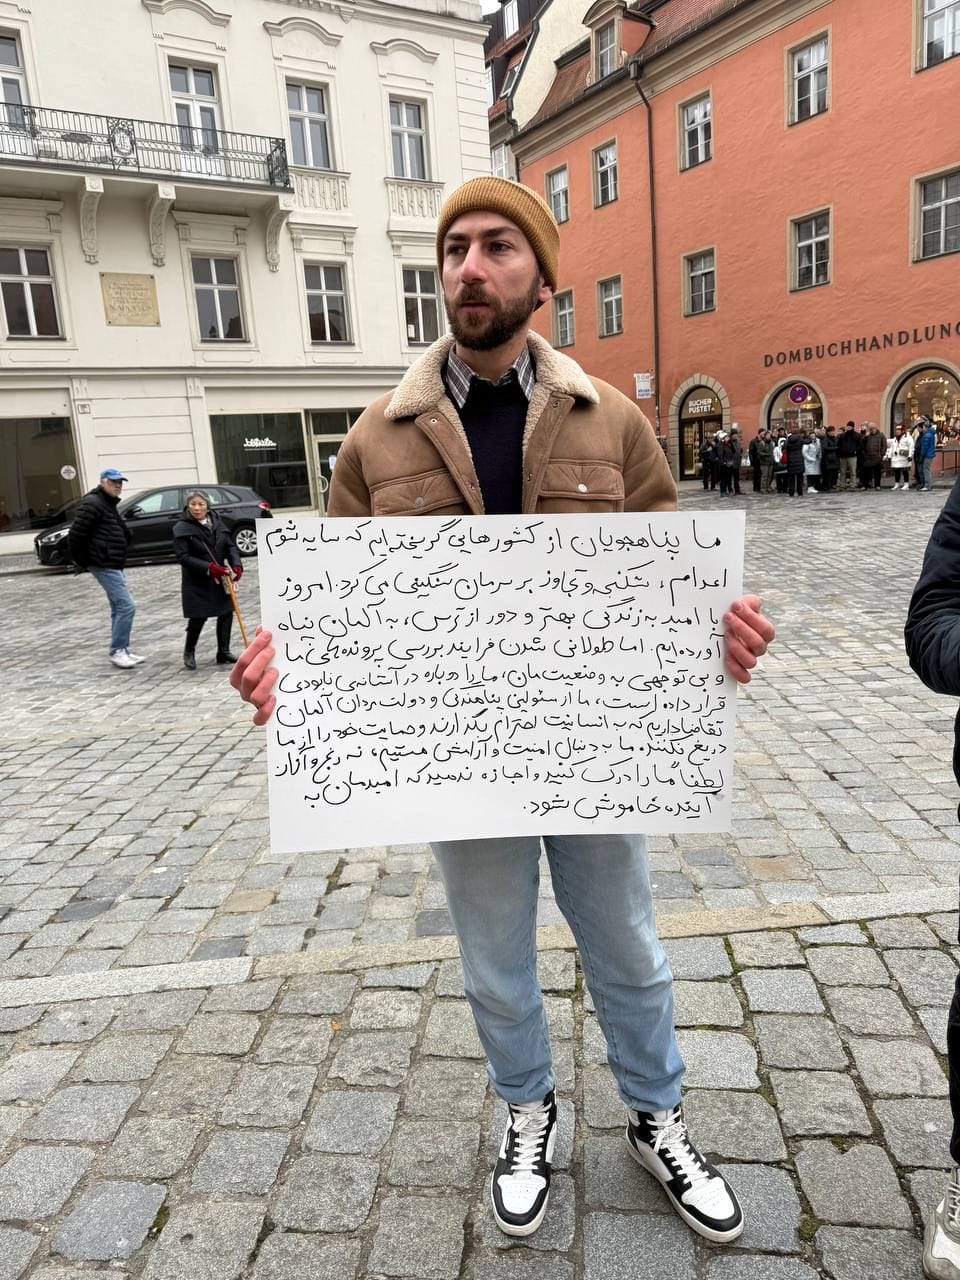 ما پناهجویان از کشورهایی گریخته‌ایم که سایه شوم
اعدام، شکنجه و تجاوز بر سرمان سنگینی می‌کرد. امروز
با امید به زندگی بهتر و دور از ترس، به آلمان پناه
آورده‌ایم. اما طولانی شدن فرایند بررسی پرونده‌های ما
و بی‌توجهی به وضعیت‌مان، ما را دوباره در آستانه‌ی نابودی
قرار داده است، ما از مسئولین پناهندگی و دولت‌مردان آلمان
تقاضا داریم که به انسانیت احترام بگذارند و حمایت خود را از ما
دریغ نکنند. ما به دنبال امنیت و آرامش هستیم، نه رنج و آزار
لطفاً ما را درک کنید و اجازه ندهید که امیدمان به
آینده خاموش شود.
DOMBUCHHANDLUNG
BÜCHER
PUSTET